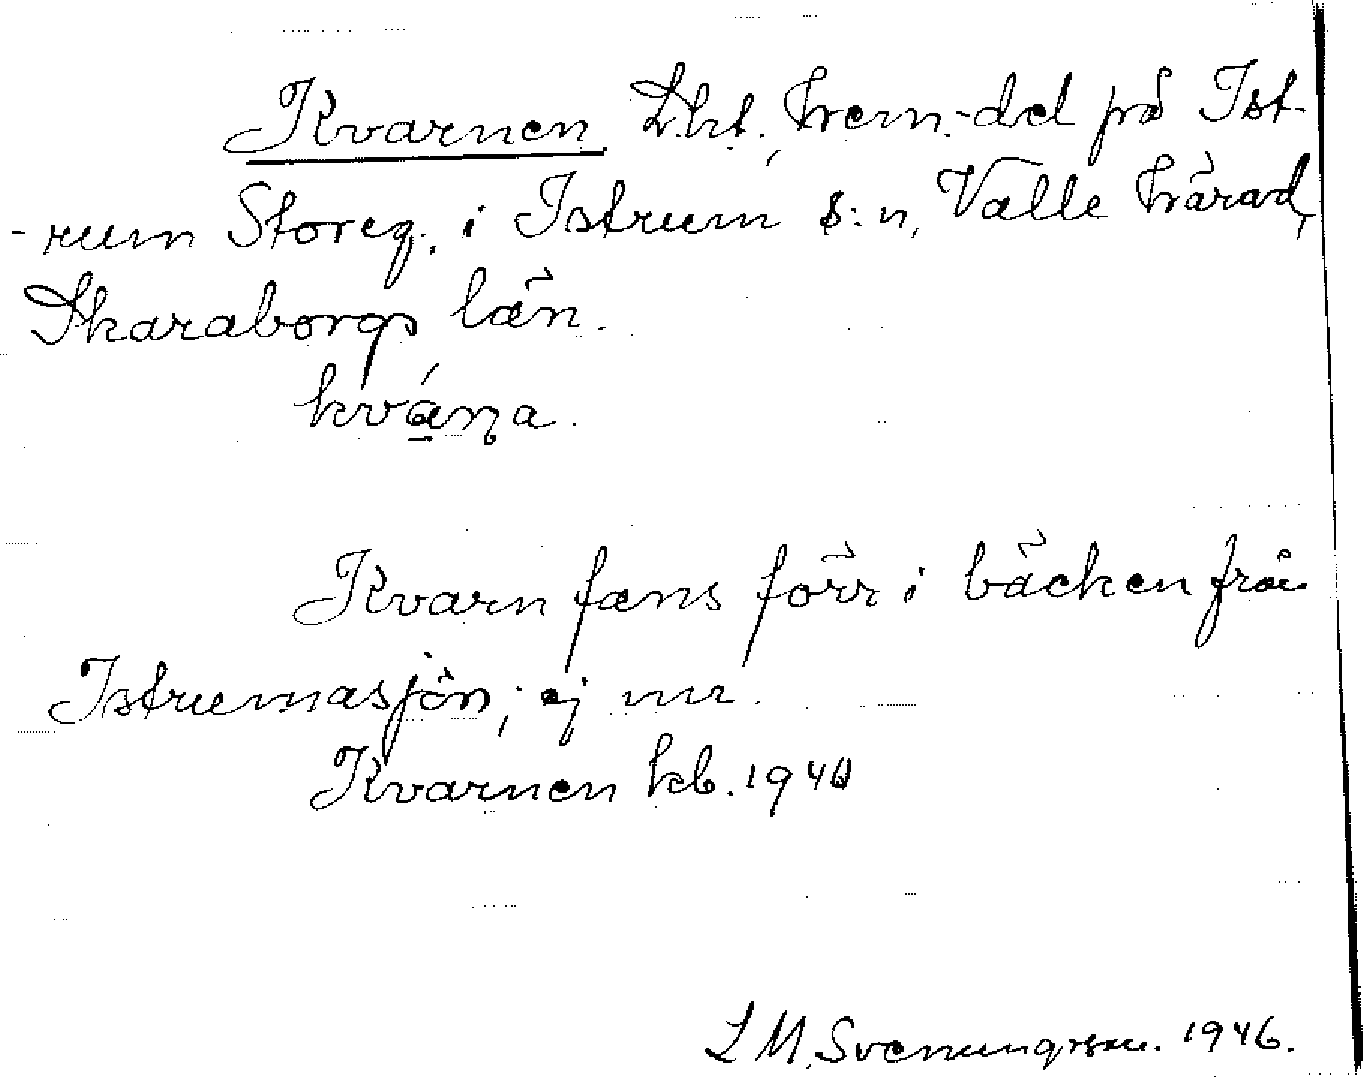 Kvarnen Lht, hem.-del på Ist-
-rum Storeg. i Istrum s:n, Valle härad,
Skaraborgs län.
kváṇa.
Kvarn fans förr i bäcken från
Istrumasjön; ej nu.
Kvarnen kb. 1940
L M, Svenungsson. 1946.